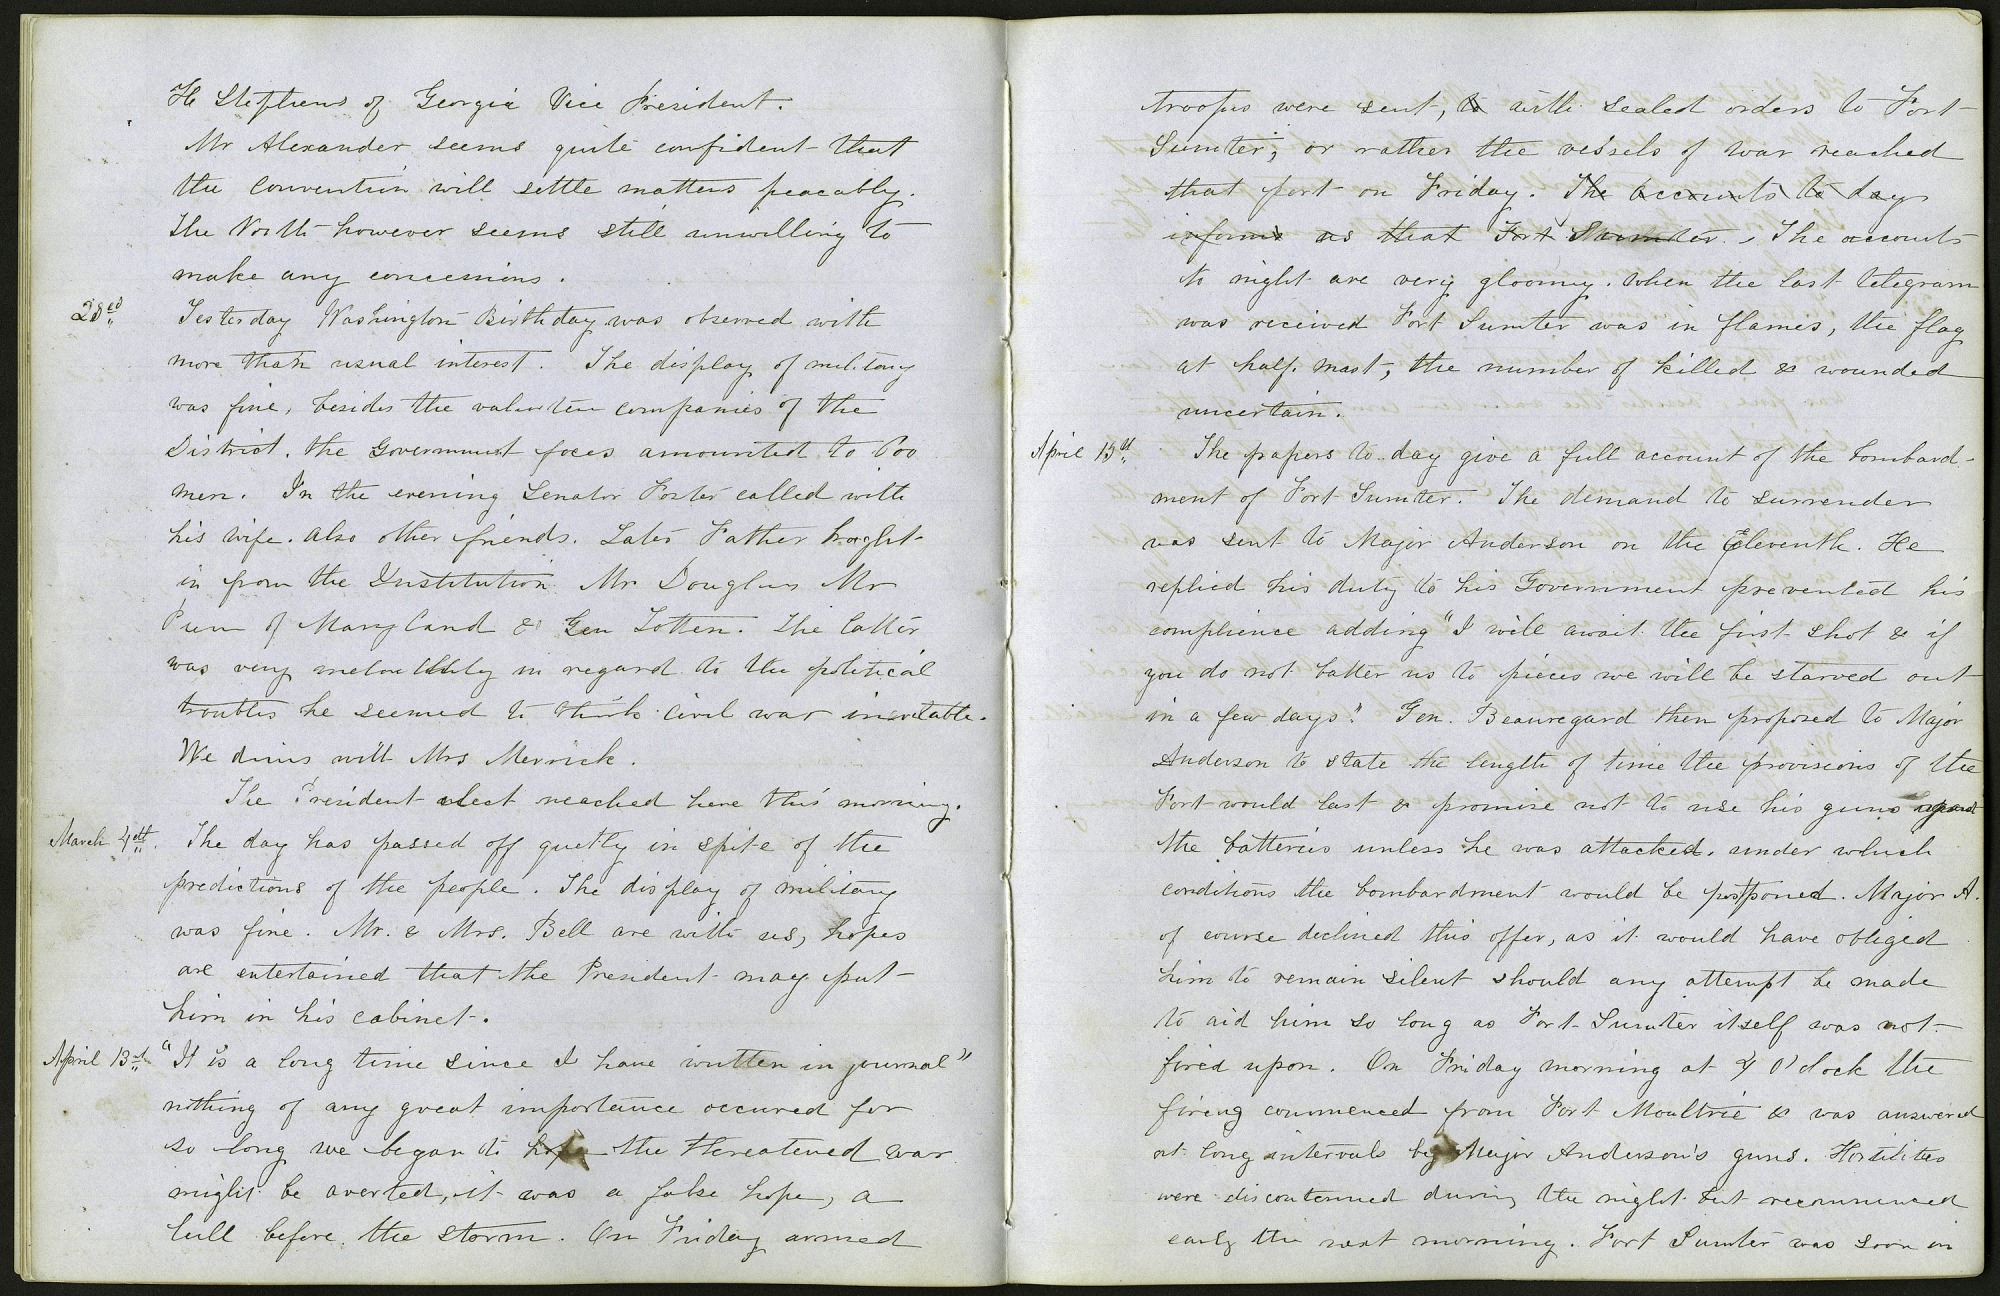 H Stephens of Georgia Vice President.
Mr Alexander seems quite confident that
the convention will settle matters peacably.
The North however seems still unwilling to
make any concessions.
23ed Yesterday Washington Birthday was observed with
more than usual interest. The display of military
was fine, besides the volunteer companies of the
District. the Government foces amounted to 800
men. In the evening Senator Foster called with
his wife. also other friends. Later Father broght
in from the Institution Mr Douglas Mr
of Maryland & Gen Totten. The latter
was very in regard to the political
troubles he seemed to think civil war inevitable.
We dines with Mrs Merrick.
The President elect reached here this morning.
March 4th. The day has passed off quetly in spite of the
predictions of the people. The display of military
was fine. Mr. & Mrs. Bell are with us, hopes
are entertained that the President may put
him in his cabinet.
April 13th "It is a long time since I have written in journal"
nothing of any great importance occured for
so long we began to hope the threatened war
might be averted, it was a false hope, a
lull before the storm. On Friday armed
troops were sent, to with sealed orders to Fort
Sumter, or rather the vessels of war reached
that port on Friday. The accounts to day
informs us that Fort Sumter. The accounts
to night are very gloomy. When the last telegram
was received Fort Sumter was in flames, the flag
at half. mast, the number of killed & wounded
uncertain.
April 15th The papers to day give a full account of the bombard-
ment of Fort Sumter. The demand to surrender
was sent to Major Anderson on the Eleventh. He
replied his duty to his Government prevented his
complience adding "I will await the first shot & if
you do not batter us to pieces we will be starved out
in a few days." Gen. Beauregard then proposed to Major
Anderson to state the length of time the provisions of the
Fort would last & promise not to use his guns upon
the batteries unless he was attacked. under which
conditions the bombardment would be postponed. Major A.
of course declined this offer, as it would have obliged
him to remain silent should any attempt be made
to aid him so long as Fort Sumter itself was not
fired upon. On Friday morning at 4 O'clock the
fireng commenced from Fort Moultrie & was answered
at long intervals by Major Anderson's guns. Hostilites
were discontenued during the night but recommenced
early the next morning. Fort Sumter was soon in